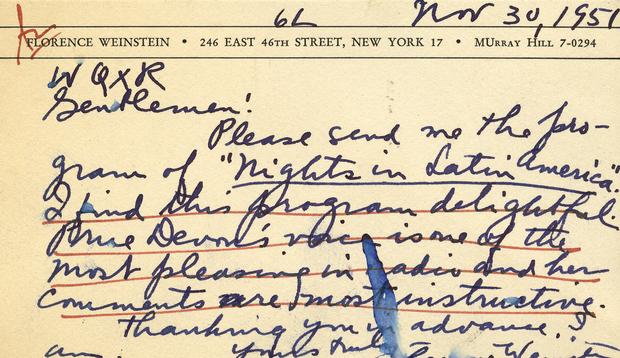 6L Nov 30, 1951
FLORENCE WEINSTEIN • 246 EAST 46TH STREET, NEW YORK 17 • MURRAY HILL 7-0294
WQXR
Gentlemen:
Please send me the pro-
gram of "Nights in Latin America".
I find this program delightful.
Pru Devon's voice is one of the
most pleasing in radio and her
comments are most instructive.
Thanking you in advance. I
am. Yours truly